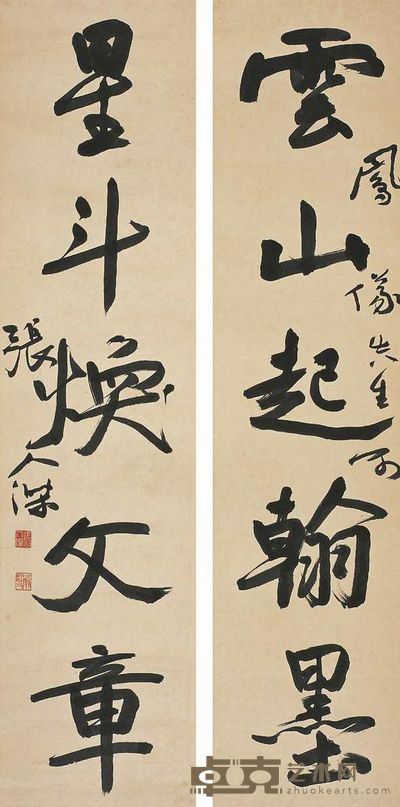 雲山起翰墨
鳳儀先生正
星斗煥文章
張人傑
卓克艺术网
zhuokearts.com